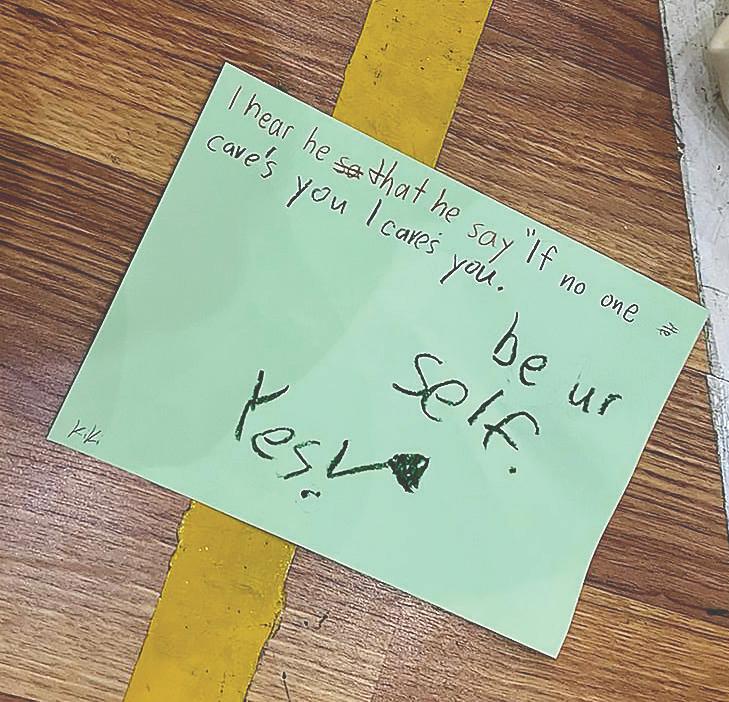 I hear he that he say "If no one
care's you I cares you.
be ur
self.
Yes!
KiKi